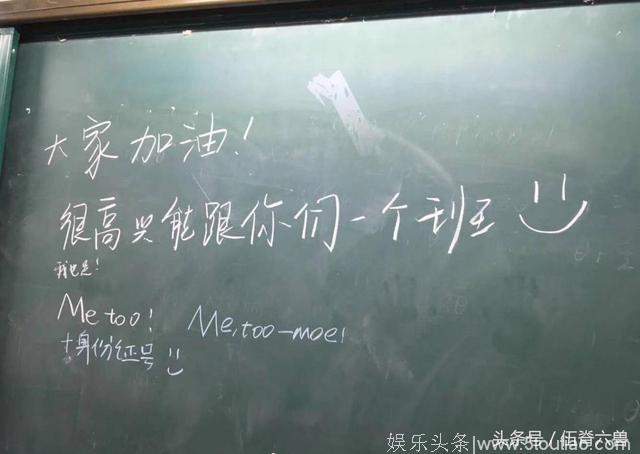 大家加油!
很高兴能跟你们一个班
我也是!
Me too! Me,too-moe!
+身份证号
头条号／伍脊六兽
娱乐头条 www.51toutiao.com